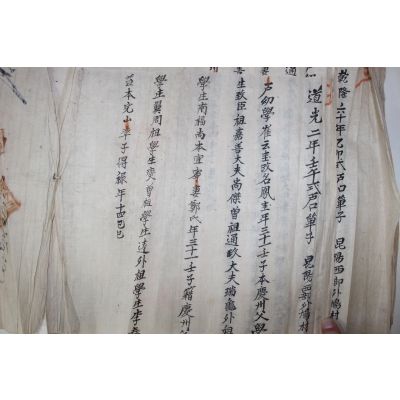 乾隆六十年乙卯式戶口單子 昆陽西部外鳩村
道光二年壬午式戶口單子 昆陽西部外鳩村
戶幼學崔 改名鳳 年三十一壬子本慶州父學
生致臣祖嘉善大夫尚傑曾祖通政大夫瑞 外祖
學生南福尚本宜寧妻鄭氏年三十一壬子籍慶州父
學生 周祖學生變曾祖學生逵外祖學生李
苔本完山率子得祿年十四己巳